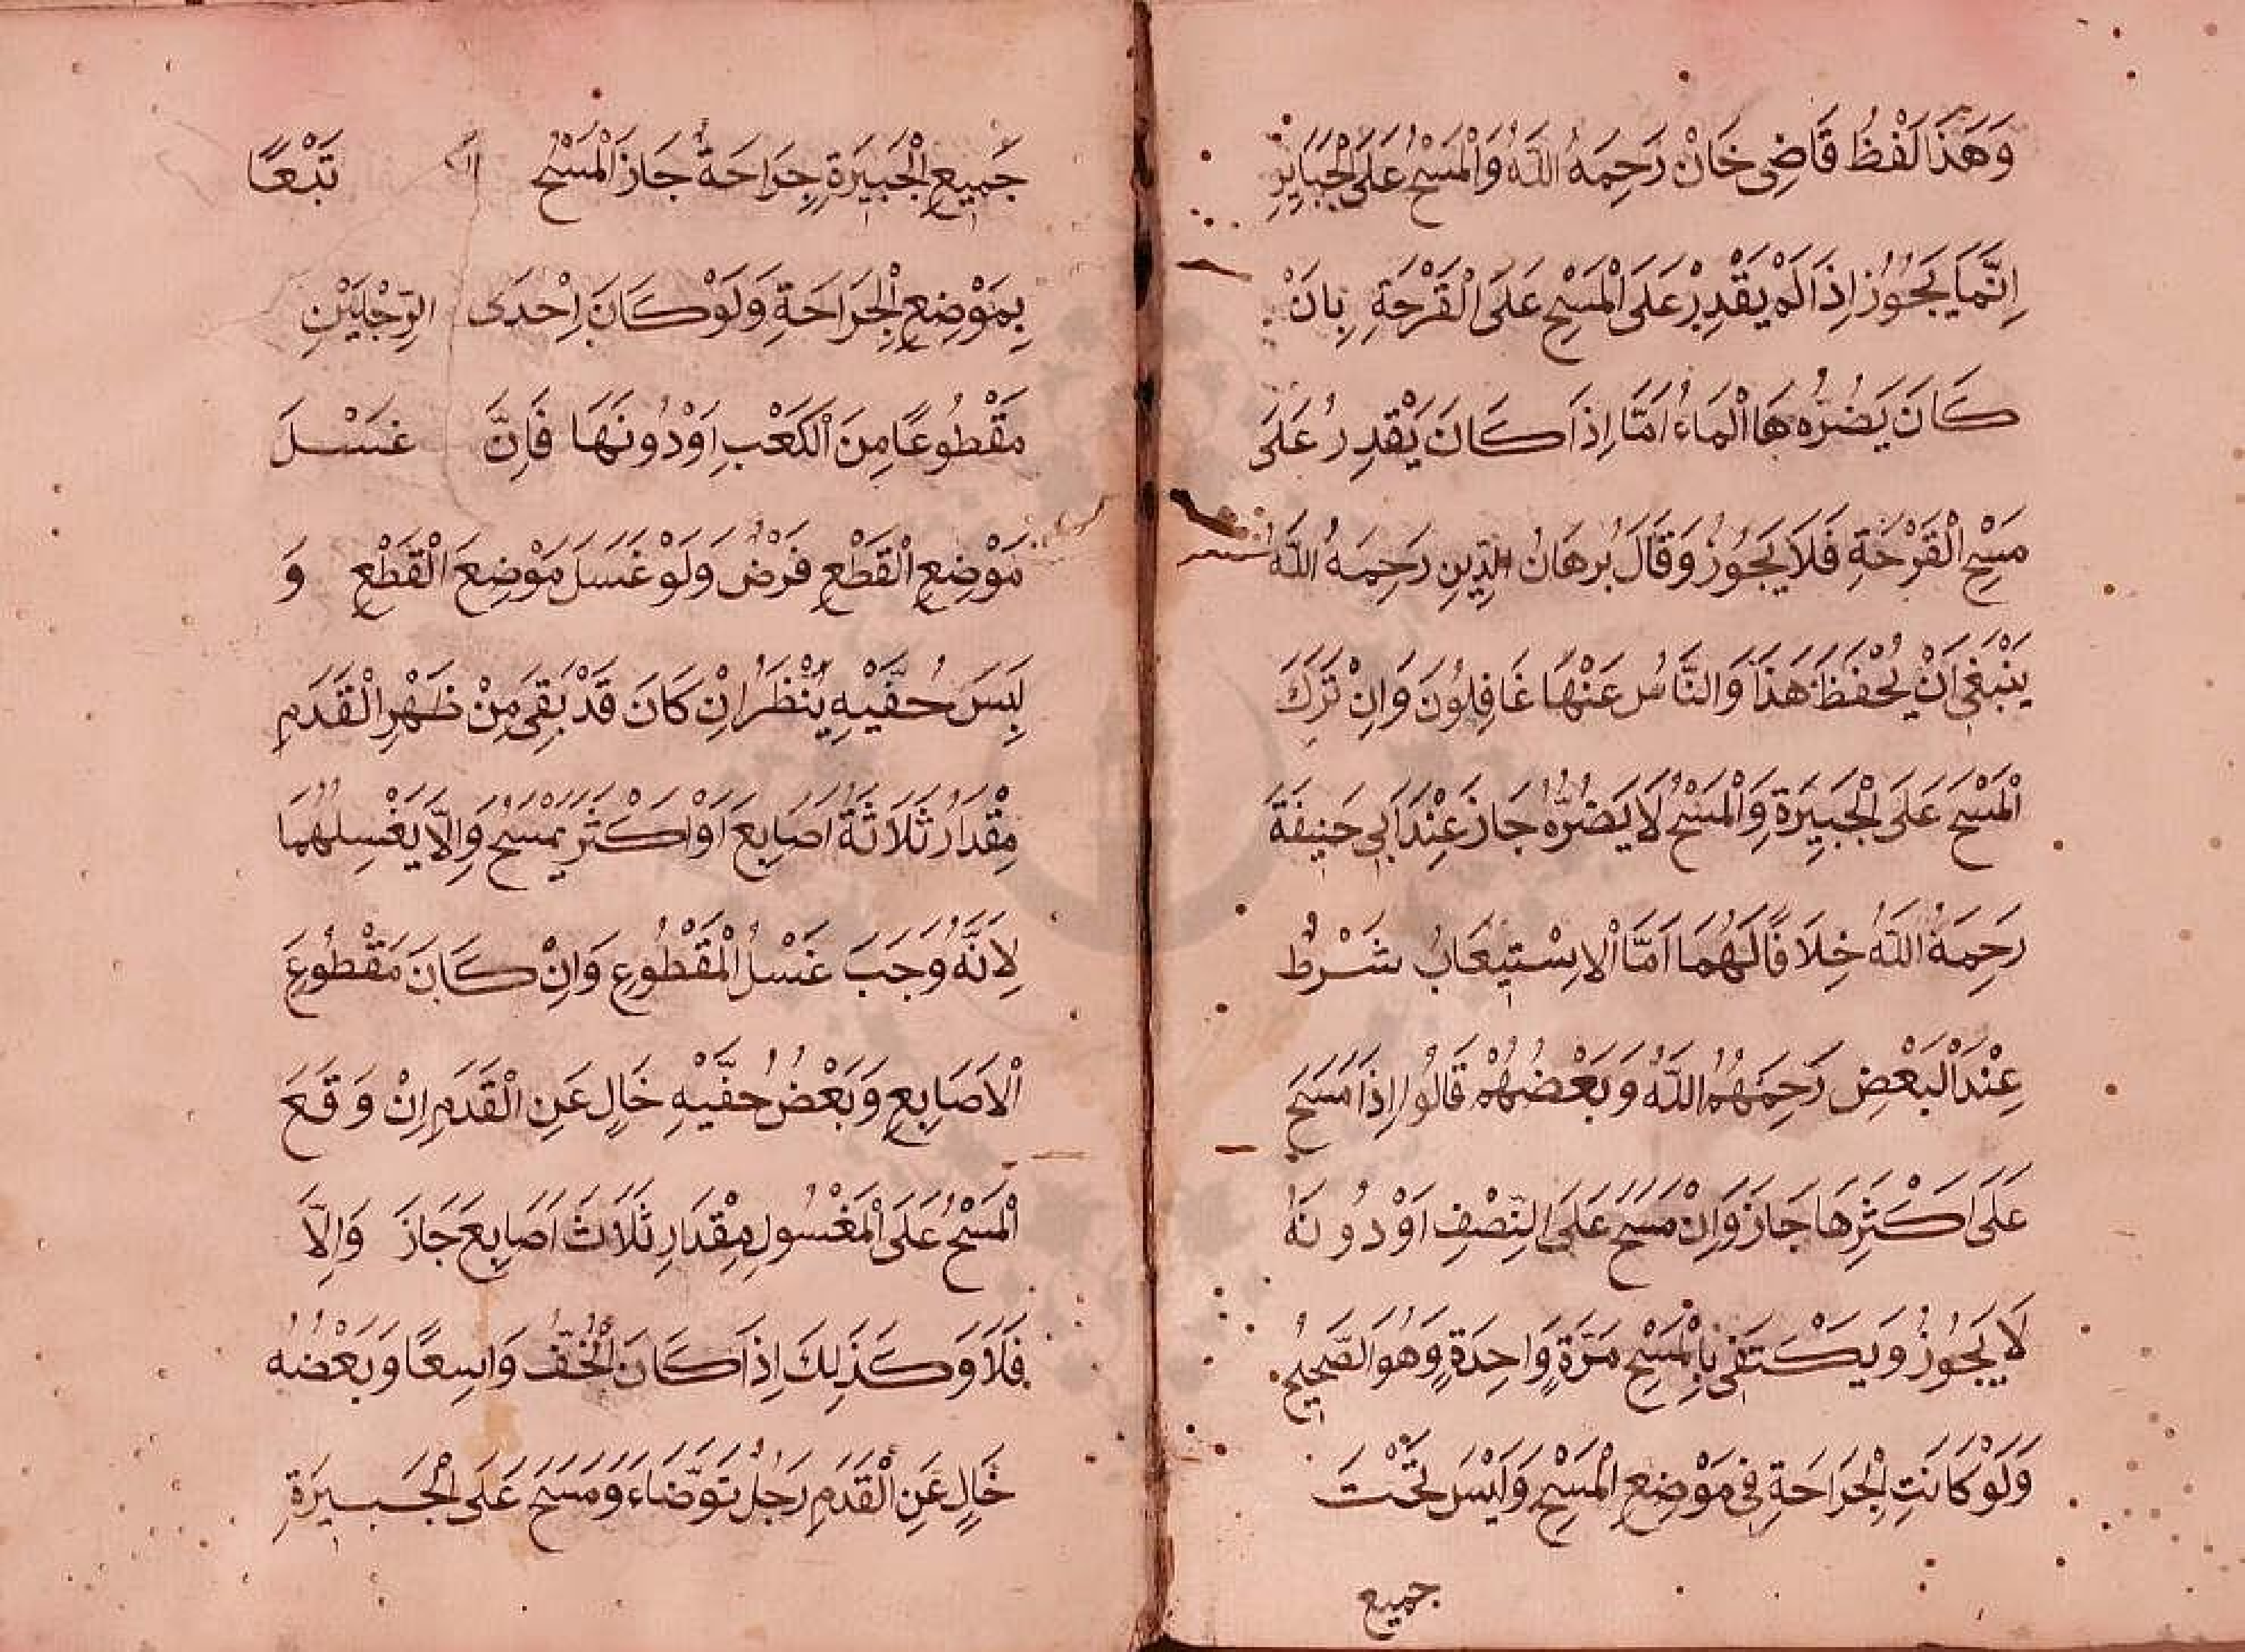 وَهَذَا لَفْظُ قَاضِى خَانْ رَحِمَهُ اللَّهُ وَالْمَسْحُ عَلَى الْجَبَايِرِ
اِنَّمَا يَجُوُزُ اِذَا لَمْ يَقْدِرْ عَلَى الْمَسْحِ عَلَى الْقَرْحَةِ بِاَنْ
كَانَ يَضُرُّهَا الْمَاءُ اَمَّا اِذَا كَانَ يَقْدِرُ عَلَى
مَسْحِ الْقَرْحَةِ فَلَا يَجُوُزُ وَقَالَ بُرهَانُ الدِّينِ رَحِمَهُ اللَّهُ
يَنْبَغِى اَنْ يُحْفَظَ هَذَا وَالنَّاسُ عَنْهَا غَافِلُونَ وَاِنْ تَرَكَ
الْمَسْحَ عَلَى الْجَبِيَرةِ وَالْمَسْحُ لَا يَضُرُّهُ جَازَ عِنْدَ اَبِى حَنِيفَةَ
رَحِمَهُ اللَّهُ خِلَافًا لَهُمَا اَمَّا الْاِسْتِيعَابُ شَرْطٌ
عِنْدَ الْبَعْضِ رَحِمَهُمُ اللَّهُ وَبَعْضُهُمْ قَالُوا اِذَا مَسَحَ
عَلَى اَكْثَرِهَا جَازَ وَاِنْ مَسَحَ عَلَى النِّصْفِ اَوْ دُونَهُ
لَا يَجُوُزُ وَيَكْتَفِى بِالْمَسْحِ مَرَّةٍ وَاحِدَةٍ وَهُوَ الصَّحِيحُ
وَلَوْ كَانَتِ الْجِرَاحَةِ فِى مَوْضِعِ الْمَسْحِ وَلَيْسَ تَحْتَ
جميع
جَمِيعِ الْجَبِيَرةِ جِرَاحَةٌ جَازَ الْمَسْحُ تَبْعًا
بِمَوْضِعِ الْجِرَاحَةِ وَلَوْ كَانَ اِحْدَى الرِّجْلَيْنِ
مَقْطُوعًا مِنَ الْكَعْبِ اَوْ دُونَهَا فَاِنَّ غَسْلَ
مَوْضِعِ الْقَطْعِ فَرْضٌ وَلَوْ غَسَلَ مَوْضِعَ الْقَطْعِ وَ
لَبِسَ خُفَّيْهِ يُنْظَرُ اِنْ كَانَ قَدْ بَقِىَ مِنْ ظَهْرِ الْقَدَمِ
مِقْدَارُ ثَلَاثَةُ اَصَابِعَ اَوْ اَكْثَرَ يَمْسَحُ وَاِلَّا يَغْسِلُهُمَا
لِاَنَّهُ وَجَبَ غَسْلُ الْمَقْطُوعِ وَاِنْ كَانَ مَقْطُوعَ
الْاَصَابِعِ وَبَعْضُ خُفَّيْهِ خَالٍ عَنِ الْقَدَمِ اِنْ وَقَعَ
الْمَسْحُ عَلَى الْمَغْسُولِ مِقْدَارِ ثَلَاثَ اَصَابِعَ جَازَ وَاِلَّا
فَلَا وَكَذَلِكَ اِذَا كَانَ الْخُفُّ وَاسِعًا وَبَعْضُهُ
خَالٍ عَنِ الْقَدَمِ رَجُلٌ تَوَضَّاءَ وَمَسَحَ عَلَى الْجَبِيَرةِ